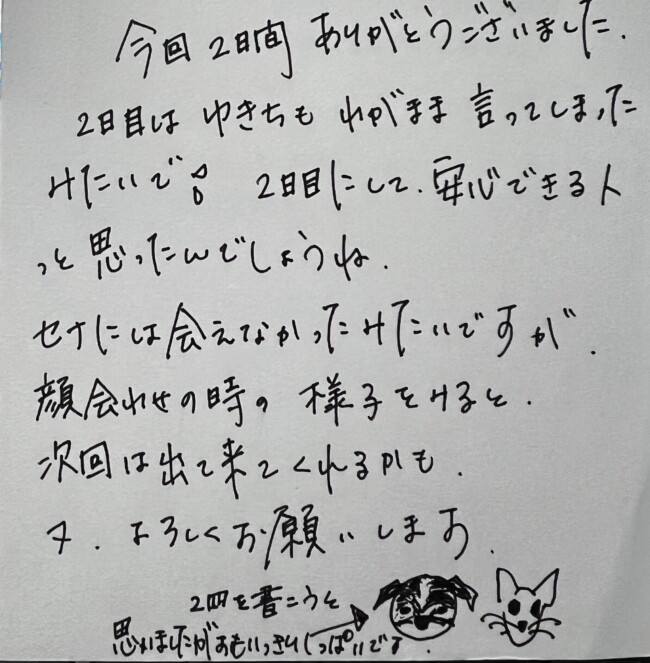 今回 2日間 ありがとうございました.
2日目は ゆきちも わがまま 言ってしまった
みたいで 2日目にして、安心できる人
っと思ったんでしょうね.
セナには会えなかったみたいですが.
顔合わせの時の 様子をみると.
次回は出て来てくれるかも.
又. よろしくお願いします.
2匹を書こうと
思いましたがおもいっきりしっぱいです.